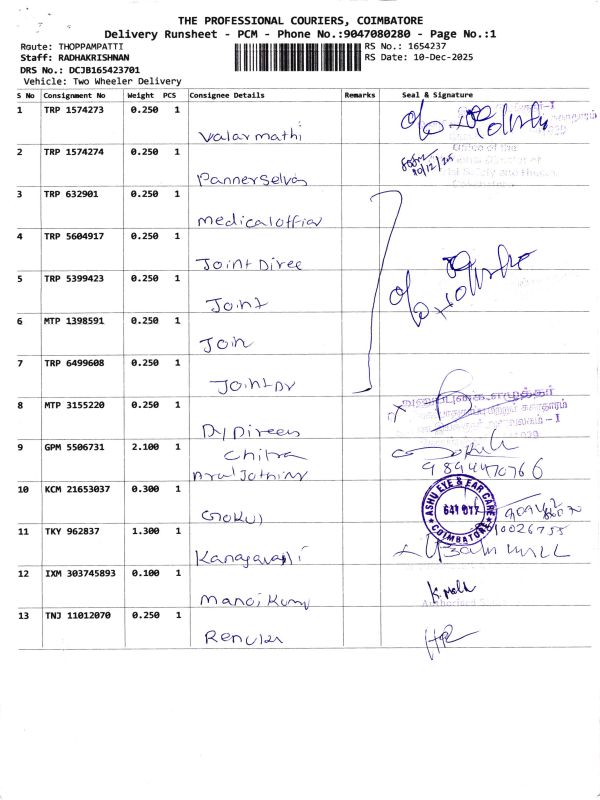 THE PROFESSIONAL COURIERS, COIMBATORE
Delivery Runsheet - PCM - Phone No.:9047080280 - Page No.:1
Route: THOPPAMPATTI
RS No.: 1654237
Staff: RADHAKRISHNAN
RS Date: 10-Dec-2025
DRS No.: DCJB165423701
Vehicle: Two Wheeler Delivery
S No Consignment No Weight PCS Consignee Details Remarks Seal & Signature
1 TRP 1574273 0.250 1
Valarmathi
2 TRP 1574274 0.250 1
Office of the
10/12/25
Pannerselvam
3 TRP 632901 0.250 1
medical officer
4 TRP 5604917 0.250 1
Joint Diree
5 TRP 5399423 0.250 1
Joint
6 MTP 1398591 0.250 1
Join
7 TRP 6499608 0.250 1
Joint Dr
8 MTP 3155220 0.250 1
Dy Direen
9 GPM 5506731 2.100 1
Chitra
9894470766
10 KCM 21653037 0.300 1
Gokul
ASHU EYE & EAR CARE
641 017
COIMBATORE
11 TKY 962837 1.300 1
12 IXM 303745893 0.100 1
Manoj Kumar
13 TNJ 11012070 0.250 1
Renuka